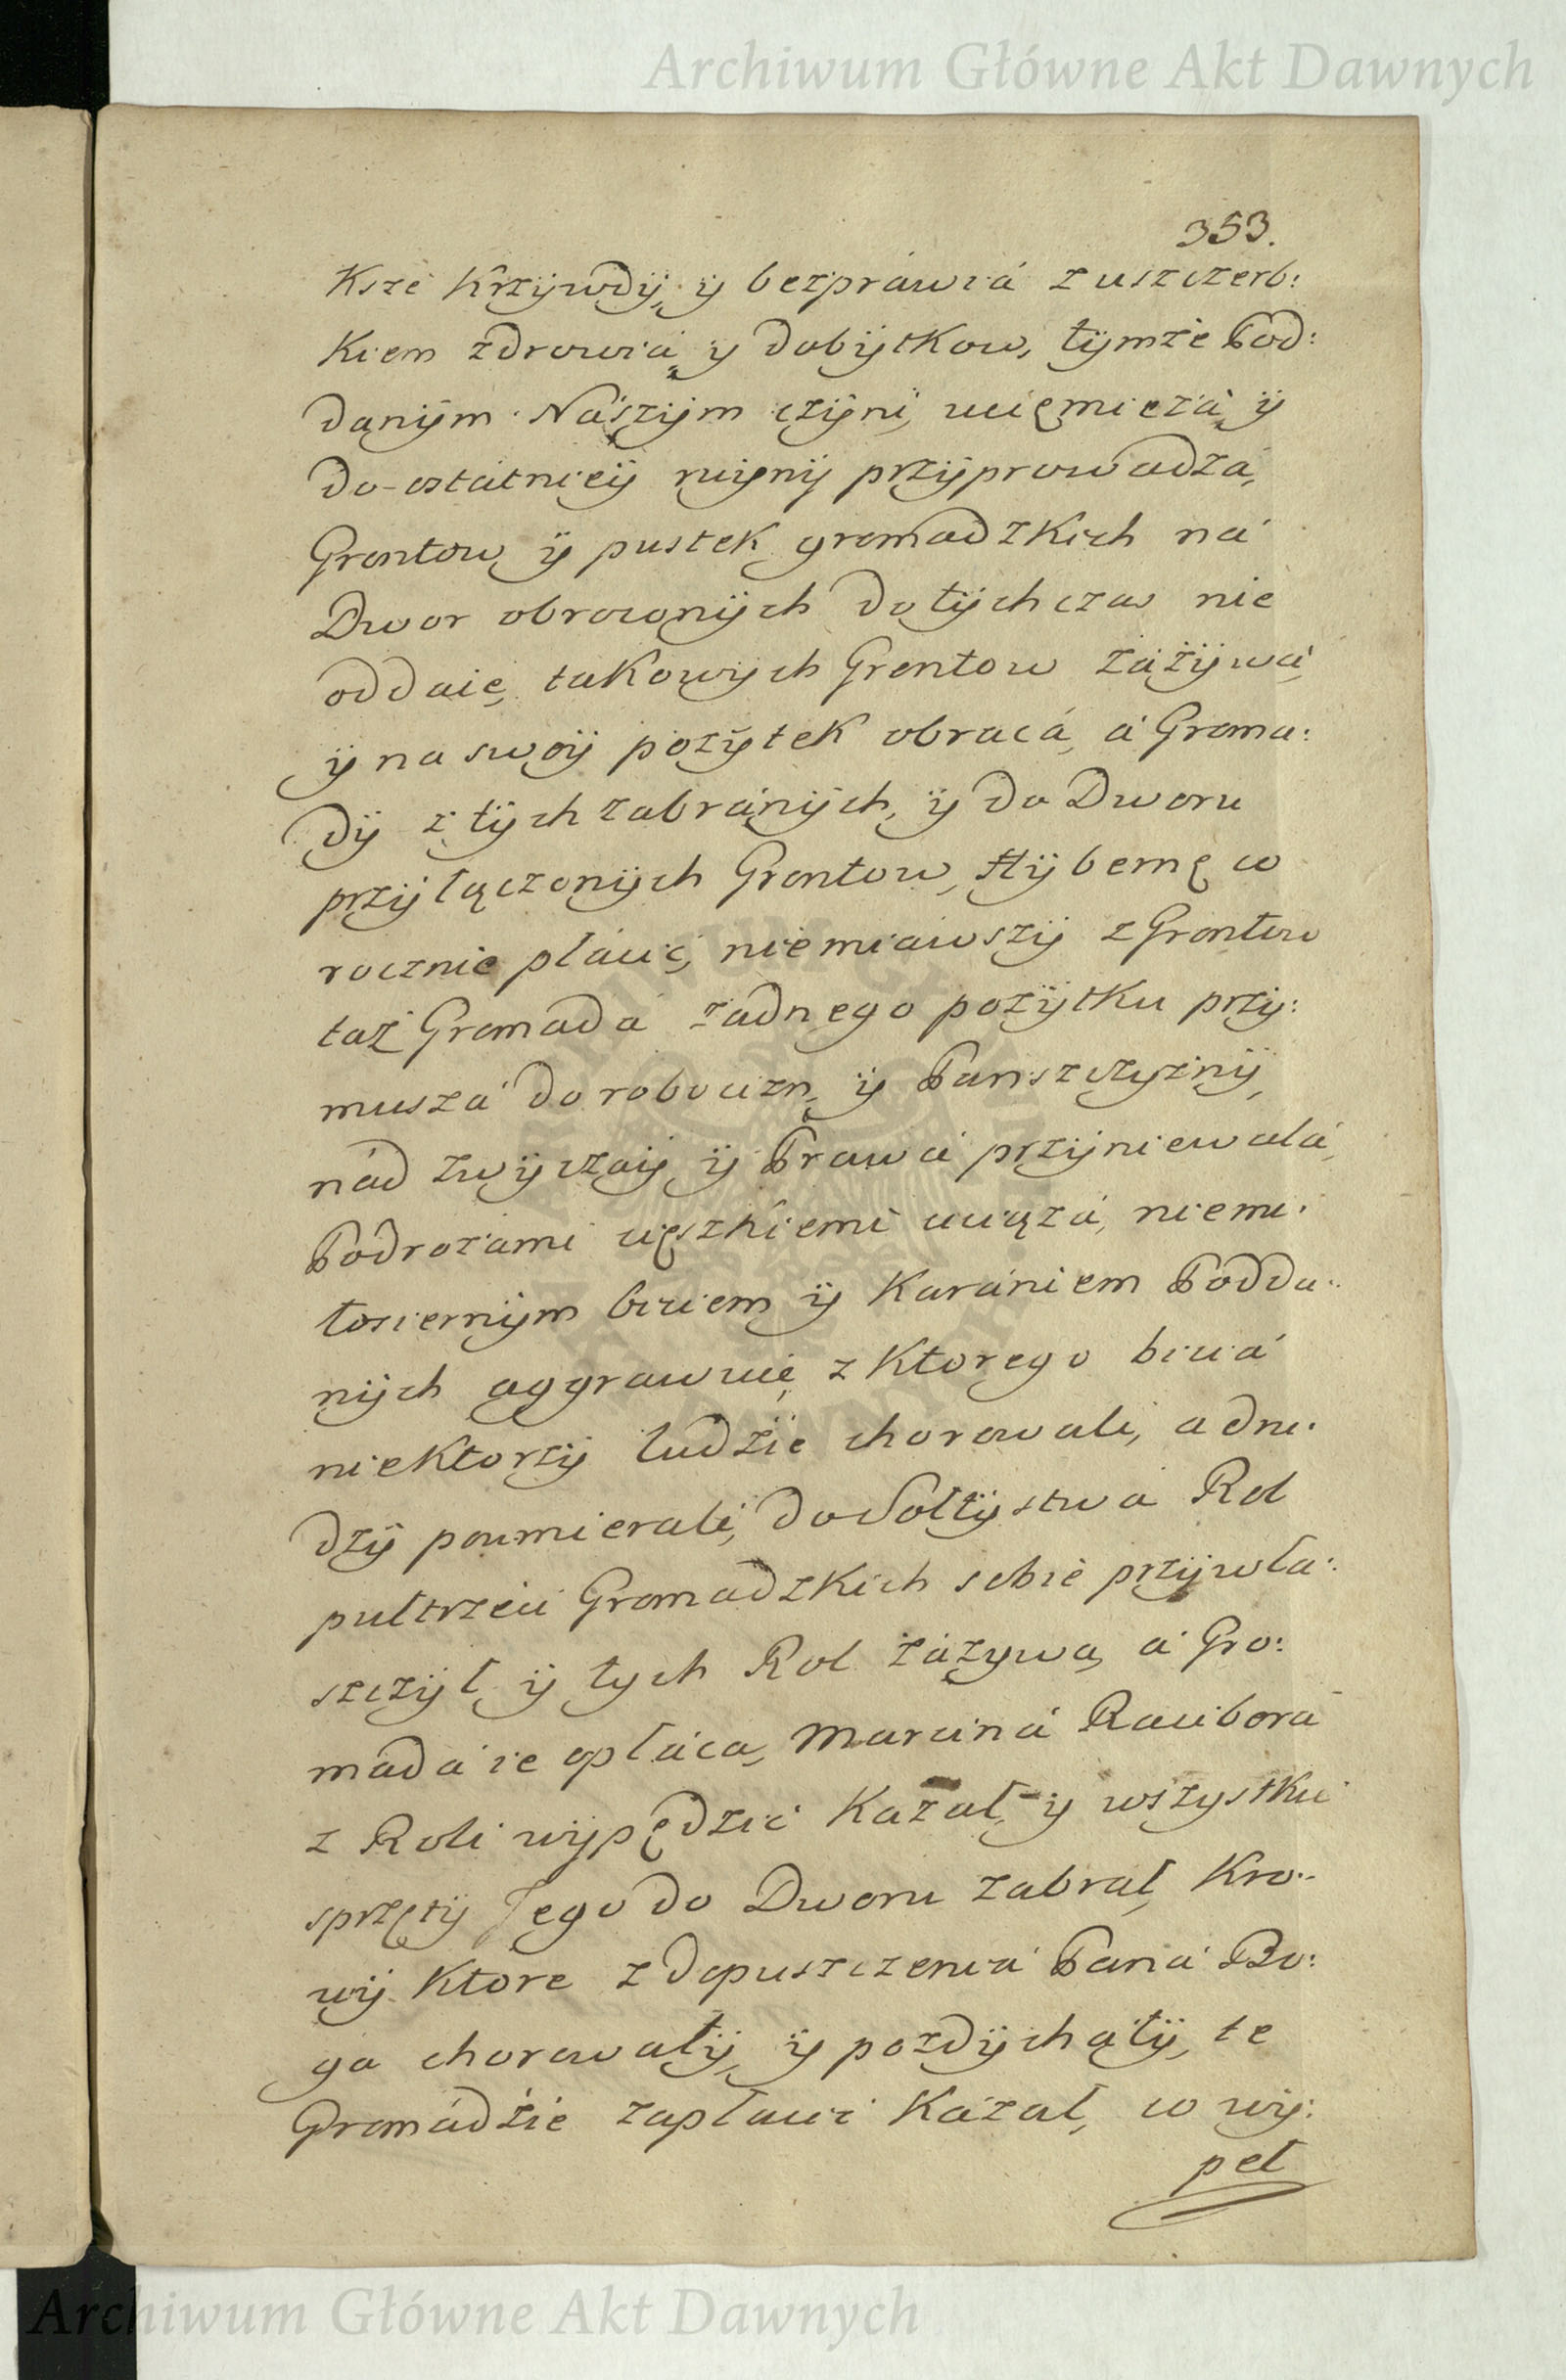 Archiwum Główne Akt Dawnych
353.
Ksze Krzÿwdÿ, ÿ bezpráwiá z uszczerb:
Kiem zdrowiá, y dobÿtkow, tÿmże Pod:
danÿm Nászÿm czÿni, ucięmięzá, ÿ
do-ostátnieÿ ruÿnÿ przÿprowadzá,
Grontow ÿ pustek gromadzkich ná
Dwor obroconÿch dotÿchczas nie
oddaie, takowÿch Grontow zázÿwá,
ÿ na swoÿ pozÿtek obracá, á Groma:
dÿ z tÿch zabránÿch, ÿ do Dworu
przÿłączonÿch Grontow, Hÿbernę co
rocznie płácić, niemiáwszÿ z Grontow
taż Gromadá żadnego pozÿtku przÿ:
muszá do robocizn, ÿ Panszczyznÿ,
nád zwÿczaÿ ÿ Prawá przÿniewalá,
Podrożámi cięszkiemi uciązá, niemi:
łosiernÿm biciem ÿ Karániem Podda:
nÿch aggrawuie, z Ktorego biciá
nieKtorzÿ ludźie chorowali, a dru:
dzÿ poumierali, do Sołtÿstwá Rol
pułtrzeci Gromadzkich sobie przÿwła:
szczÿł, ÿ tych Rol zázywa, á Gro:
madá ie opłáca, Marciná Raciborá
z Roli wÿpędzić Kazał, y wszystkie
sprzętÿ Jego do Dworu zabrał, Kro:
wÿ Ktore z dopuszczeniá Paná Bo:
ga chorowáłÿ, ÿ pozdÿcháłÿ, te
Gromádźie zapłacić Kázał, w wÿ:
peł
Archiwum Główne Akt Dawnych